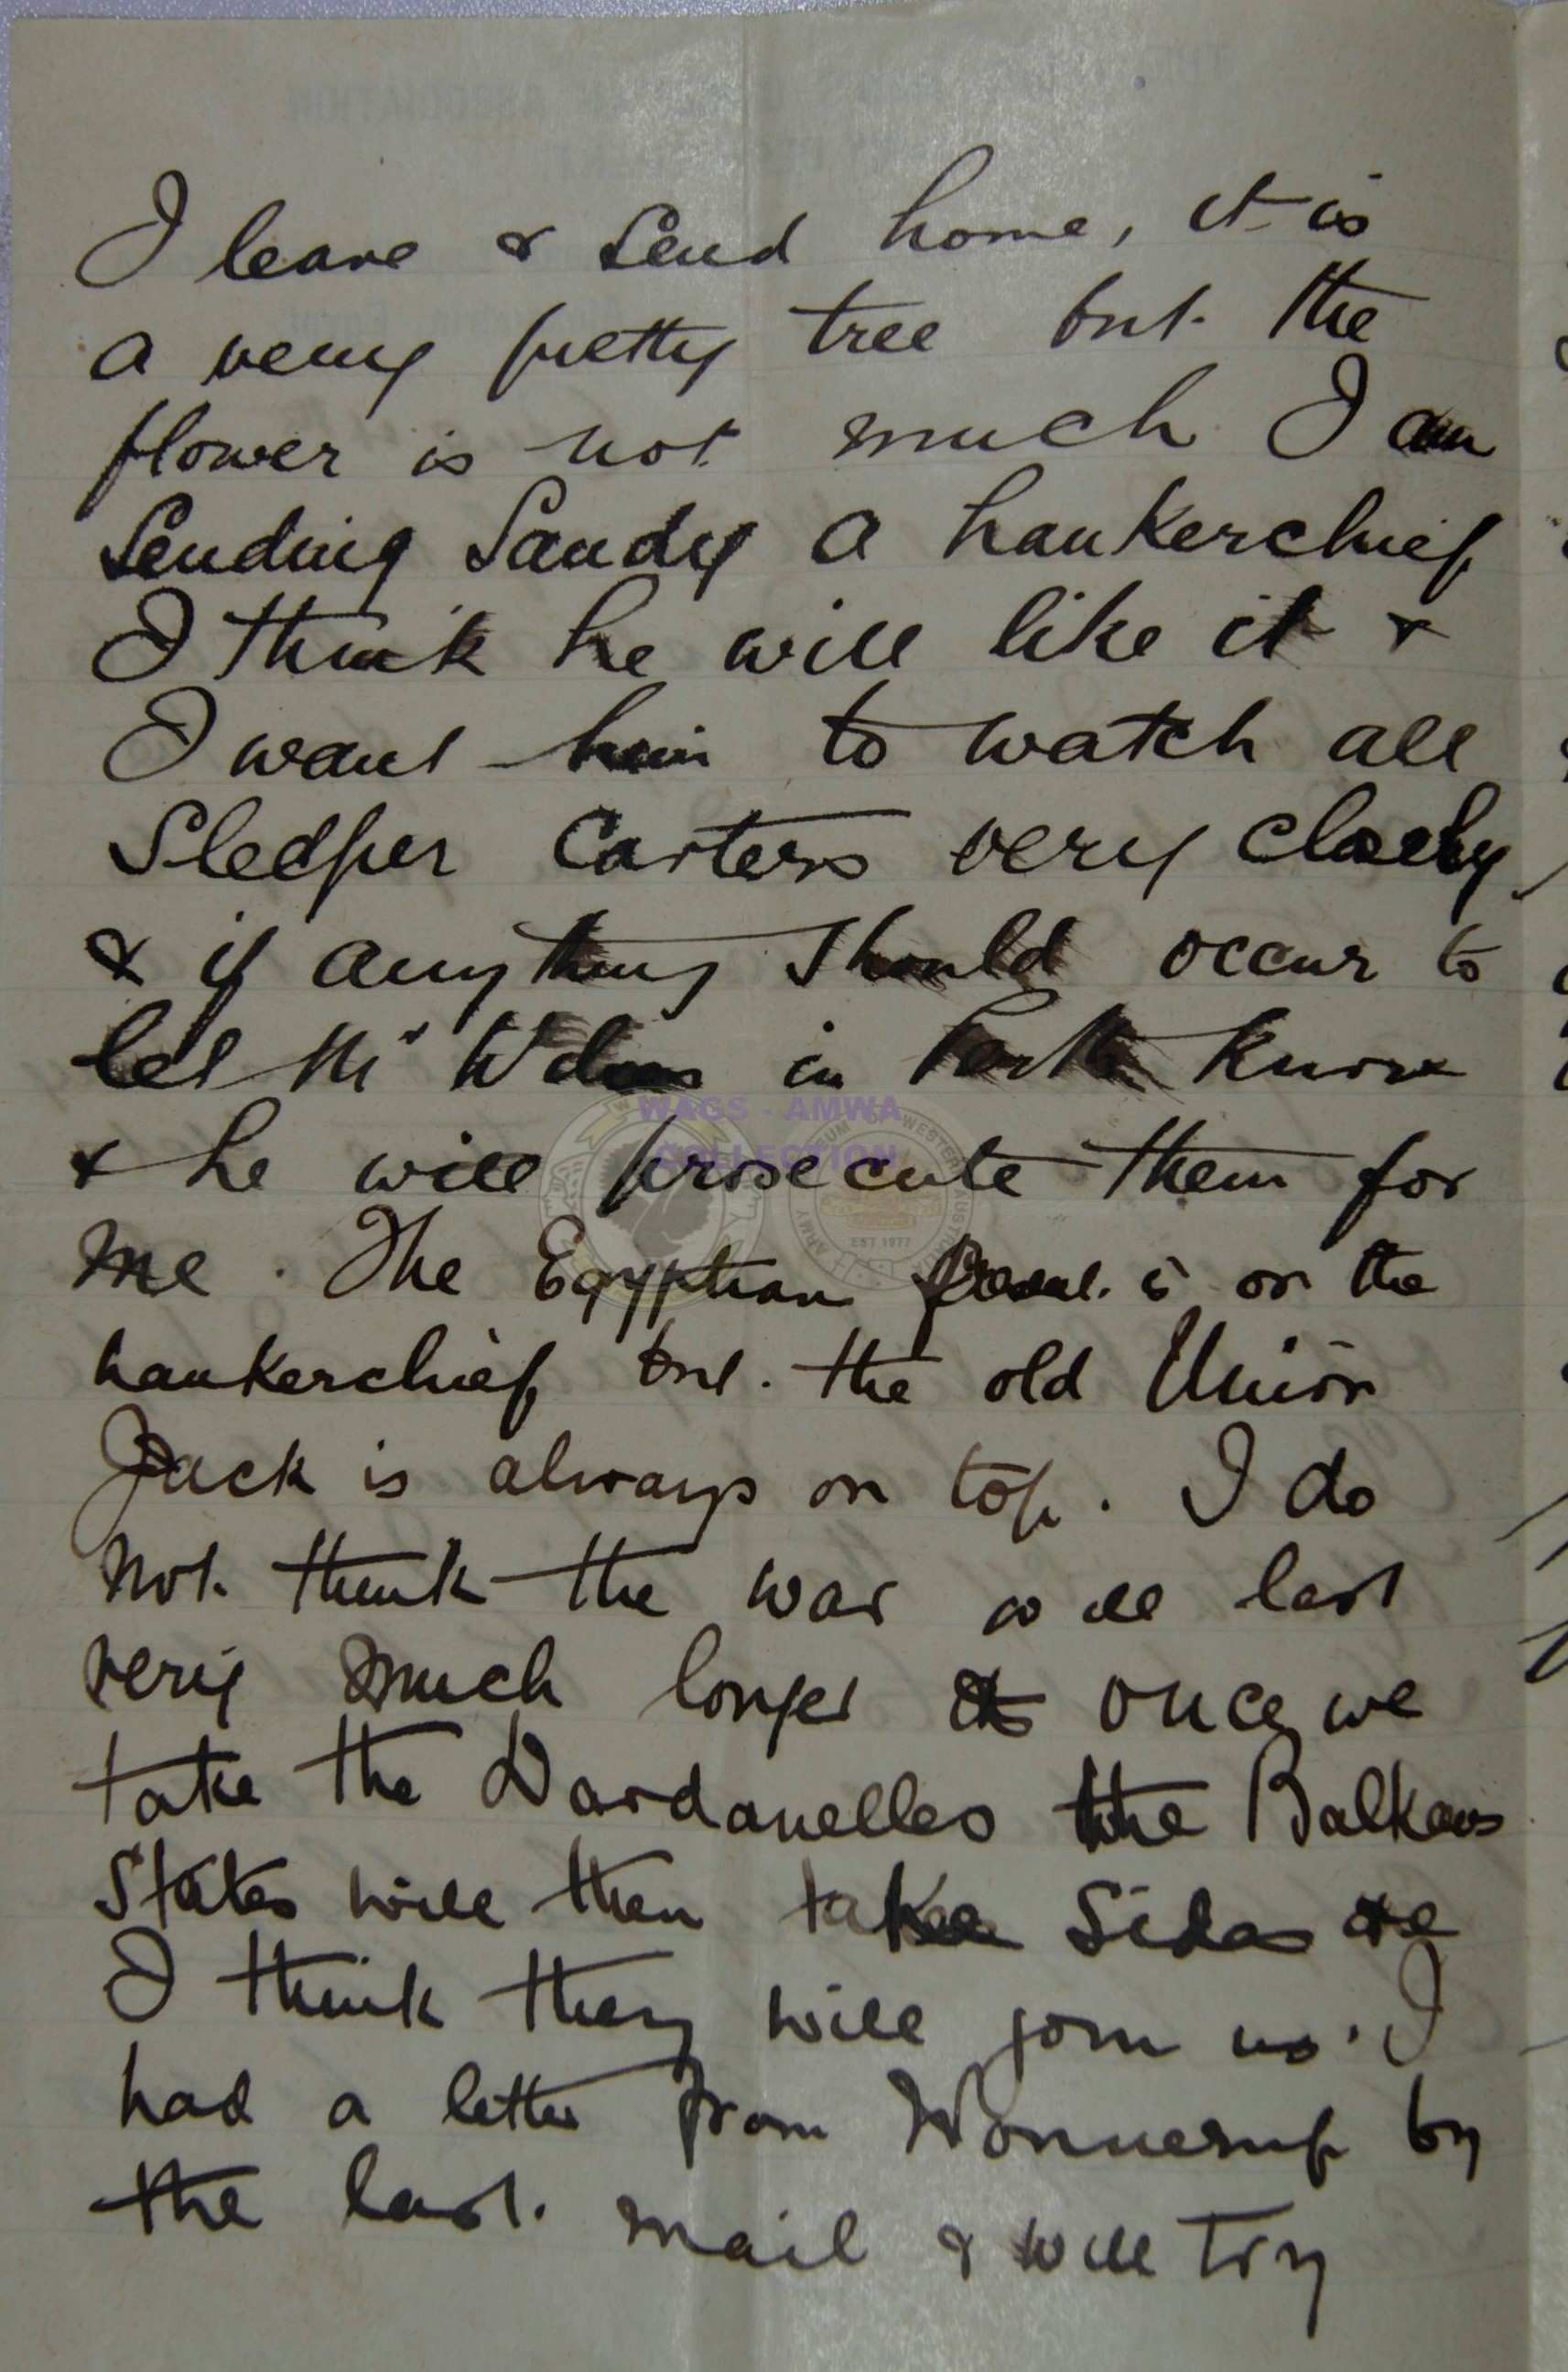 I leave & send home, it is
a very pretty tree but the
flower is not much I am
Sending Sandy a hankerchief
I think he will like it &
I want him to watch all
Sleeper Carters very closely
& if anything should occur to
let Mr in Perth know
& he will prosecute them for
me. The Egyptian is on the
hankerchief but. the old Union
Jack is always on top. I do
not think the war will last
very much longer once we
take the Dardanelles the Balkans
States will then take sides
I think they will join us. I
had a letter from Wonnerup by
the last. mail & will try
WAGS - AMWA
COLLECTION
EST 1977